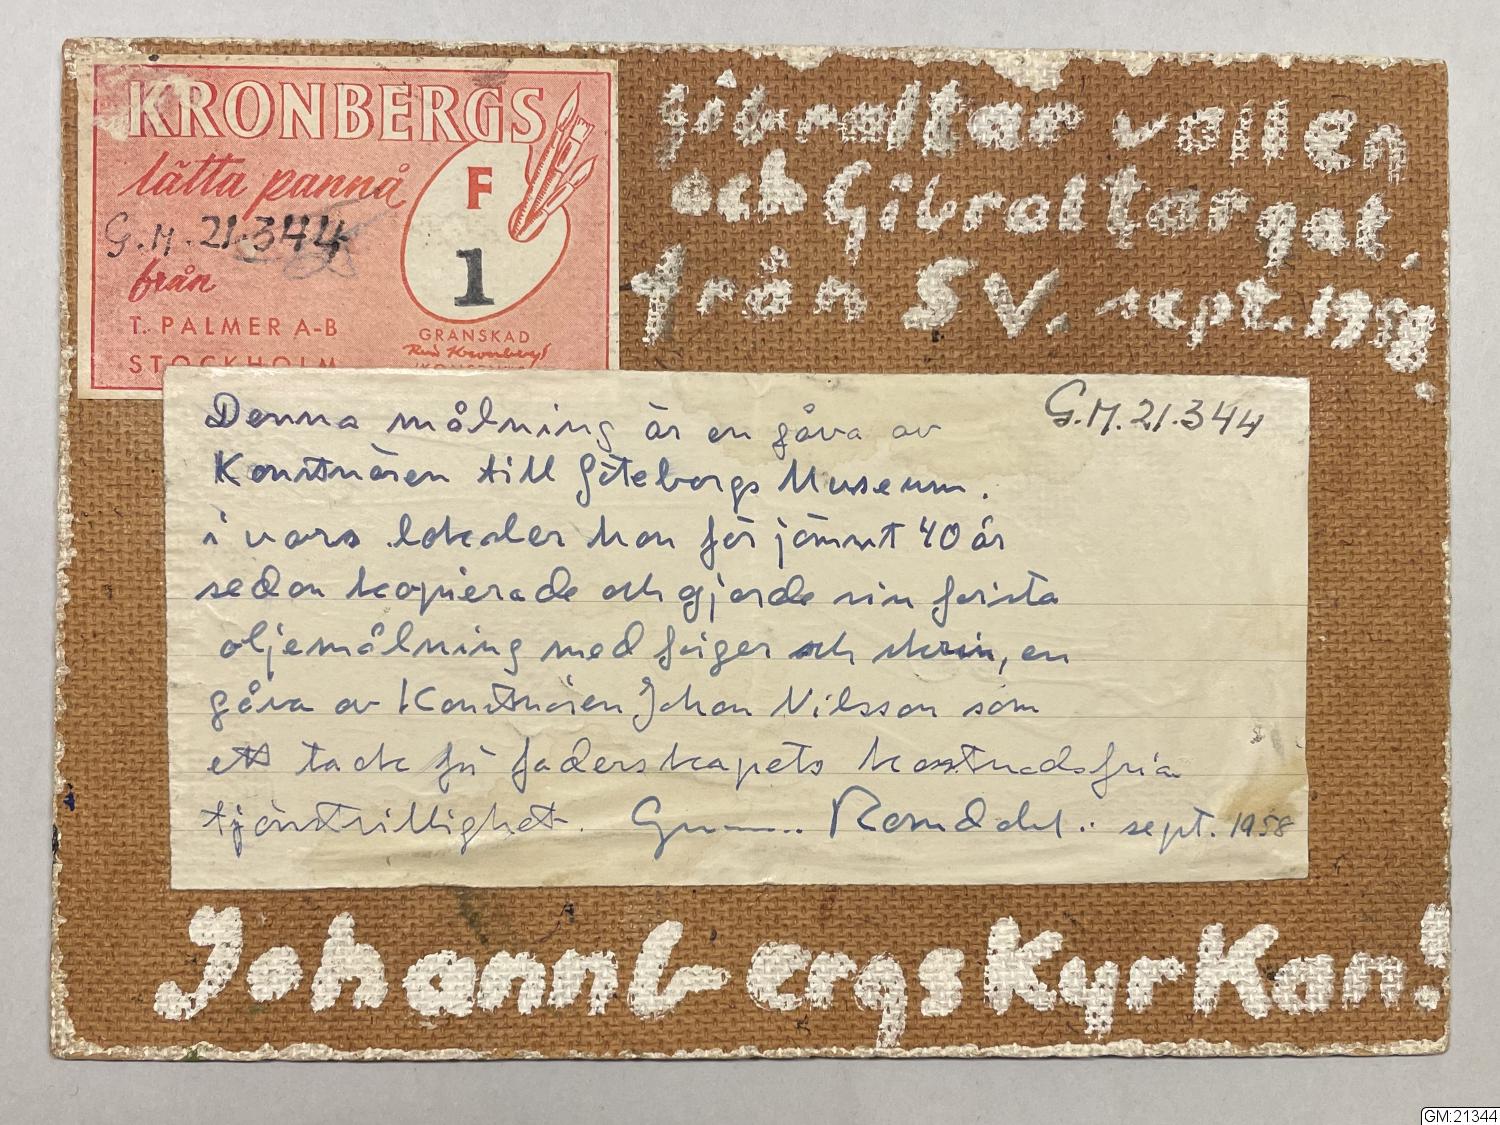 KRONBERGS
lätta pannå
F
1
G.M. 21.344
från
T. PALMER A-B
STOCKHOLM
GRANSKAD
Gibraltar vallen
och Gibraltargat.
från SV. sept. 1958.
G.M. 21.344
Denna målning är en gåva av
Konstnären till Göteborgs Museum.
i vars lokaler han för jämnt 40 år
sedan kopierade och gjorde sin första
oljemålning med färger och skrin, en
gåva av Konstnären Johan Nilsson som
ett tack för faderskapets kostnadsfria
tjänstvillighet. Gunnar Romdahl. sept. 1958
Johannbergskyrkan!
GM:21344